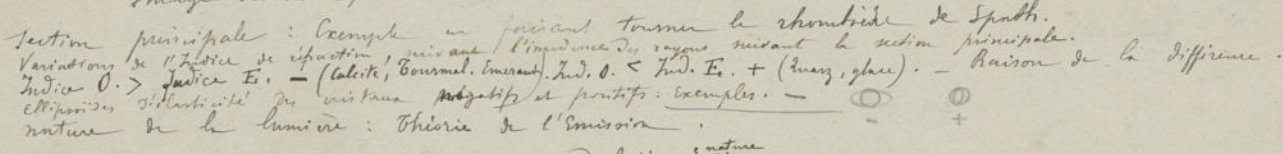 Section principale : Exemple en faisant tourner le rhomboèdre de Spath.
Variations de l'Indice de réfraction, suivant l'incidence des rayons suivant la section principale.
Indice O. > Indice E. – (Calcite, Tourmal. Emeraud). Ind. O. < Ind. E. + (Quarz, glace). – Raison de la différence.
Ellipsoïdes d'élasticité des cristaux négatifs et positifs : Exemples. –
- +
nature de la lumière : Théorie de l'Emission.
nature